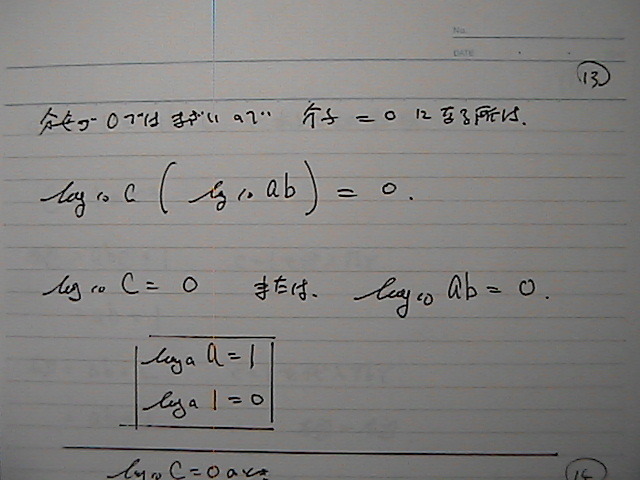 No.
DATE
⑬
分母が0ではまずいので 分子=0になる所は、
log₁₀C(log₁₀ab)=0.
log₁₀C=0 または、 log₁₀ab=0.
logₐa=1
logₐ1=0
log₁₀C=0のとき